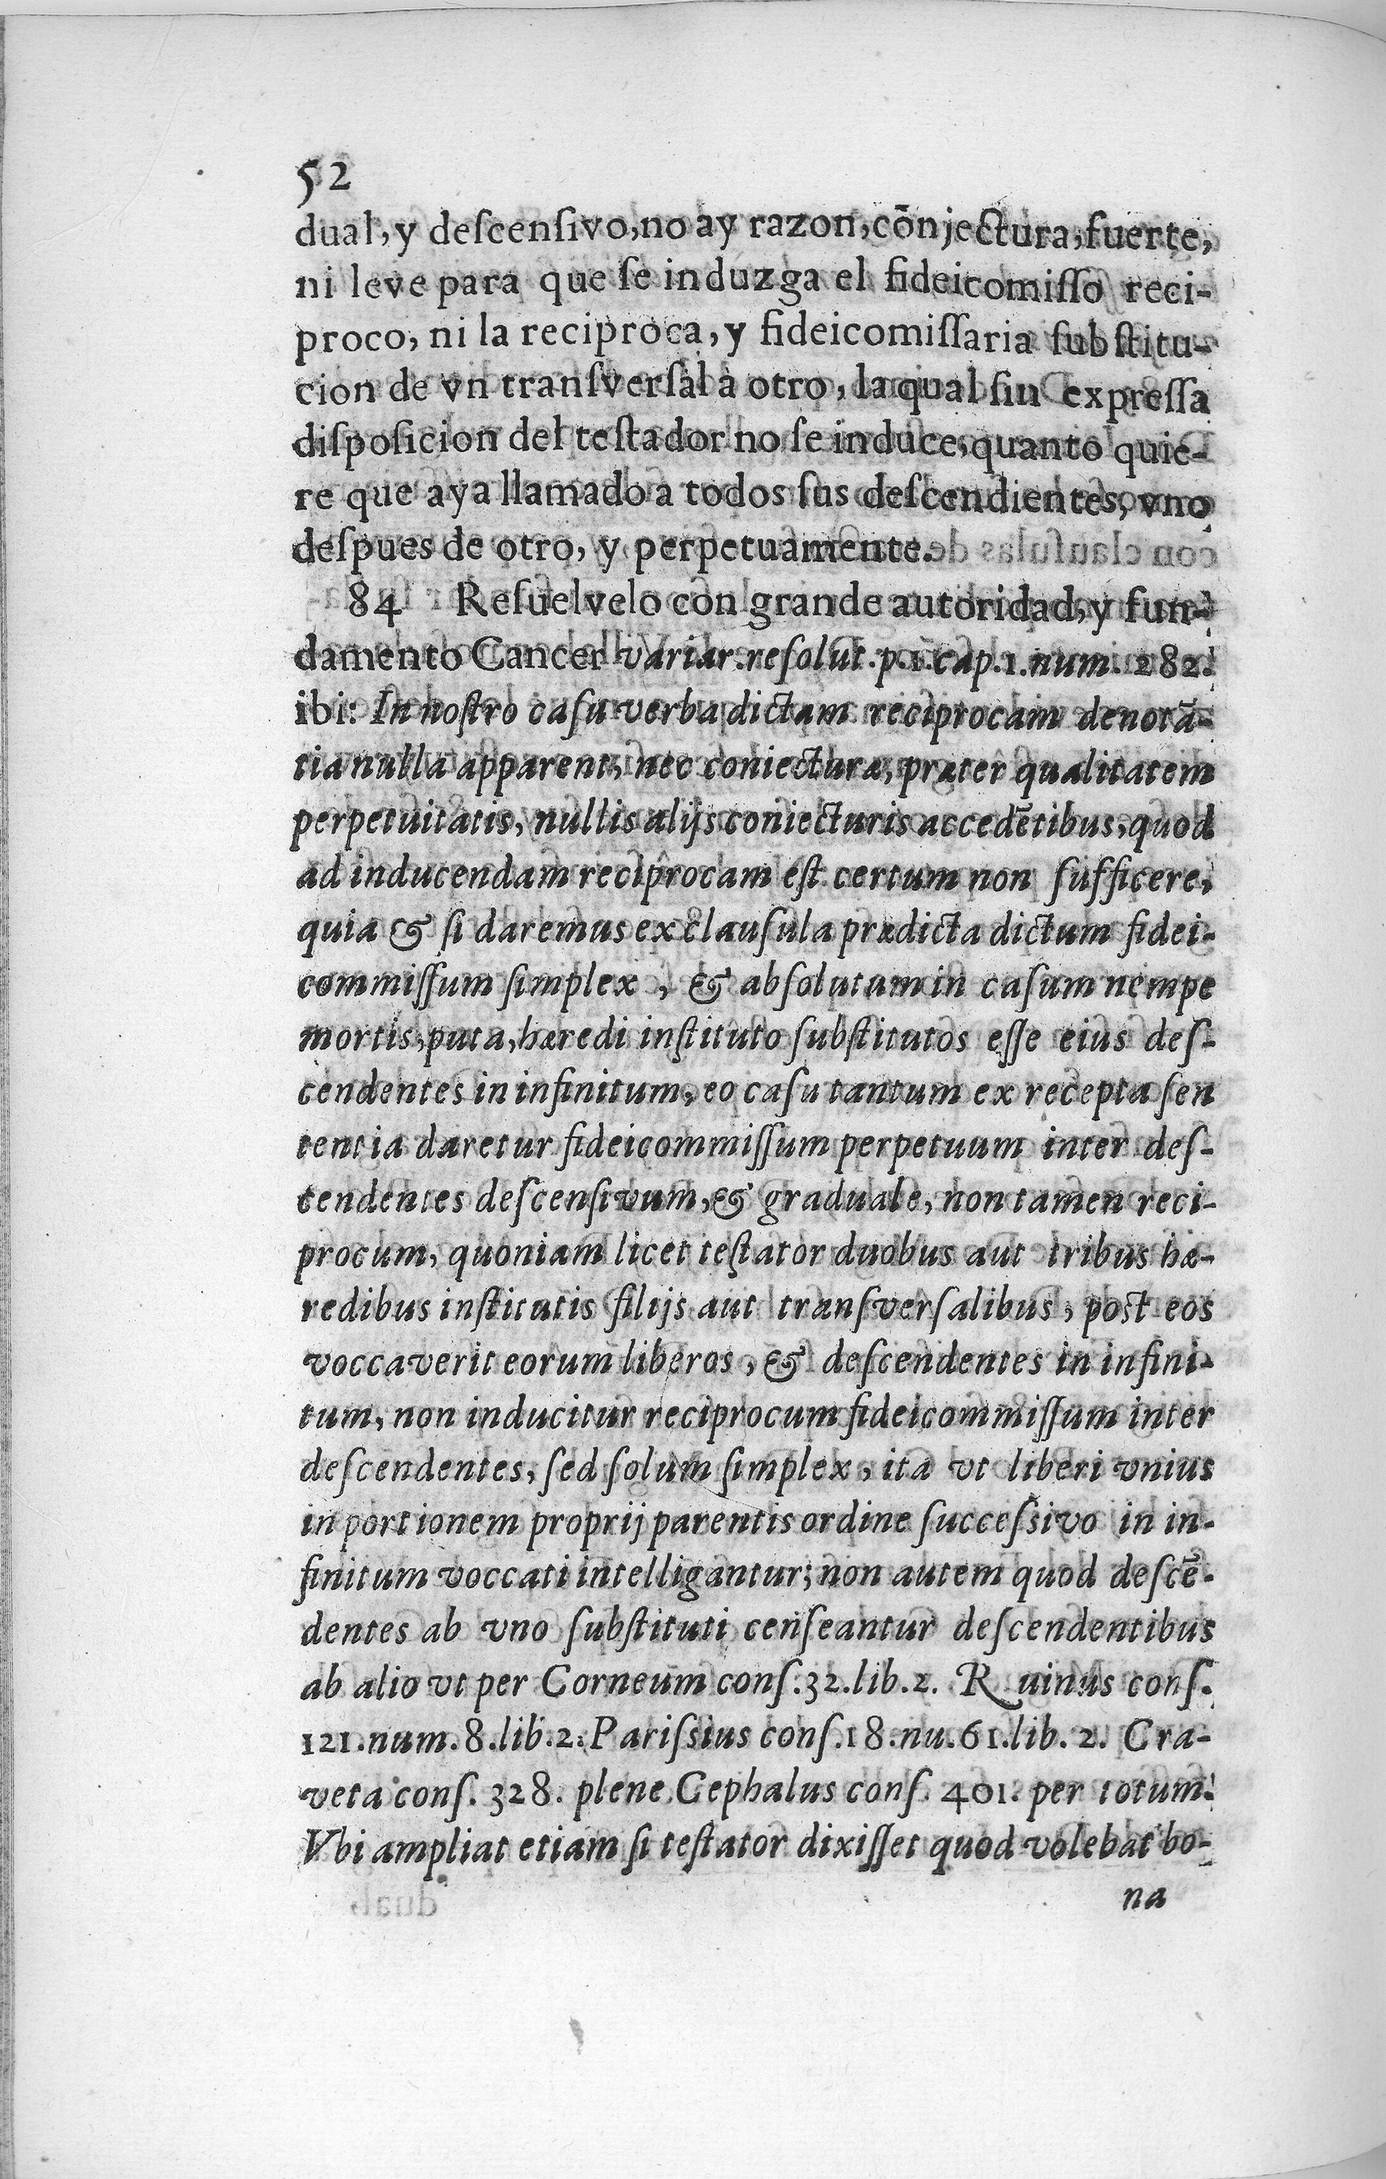 52
dual, y descensivo, no ay razon, cōnjectura, fuerte,
ni leve para que se induzga el fideicomisso reci-
proco, ni la reciproca, y fideicomissaria substitu-
cion de vn transversal à otro, la qual sin expressa
disposicion del testador no se induce, quanto quie-
re que aya llamado a todos sus descendientes, vno
despues de otro, y perpetuamente.
84 Resuelvelo con grande autoridad, y fun-
damento Cancer variar. resolut. p. 1. cap. 1. num. 282.
ibi: In nostro casu verba dictam reciprocam denotā-
tia nulla apparent, nec coniecturæ, præter qualitatem
perpetuitatis, nullis alijs coniecturis accedētibus, quod
ad inducendam reciprocam est certum non sufficere,
quia & si daremus ex clausula prædicta dictum fidei-
commissum simplex, & absolutum in casum nempe
mortis, puta, hæredi instituto substitutos esse eius des-
cendentes in infinitum, eo casu tantum ex recepta sen
tentia daretur fideicommissum perpetuum inter des-
tendentes descensivum, & graduale, non tamen reci-
procum, quoniam licet testator duobus aut tribus hæ-
redibus institutis filijs aut transversalibus, post eos
voccaverit eorum liberos, & descendentes in infini-
tum, non inducitur reciprocum fideicommissum inter
descendentes, sed solum simplex, ita vt liberi vnius
in portionem proprij parentis ordine successivo in in-
finitum voccati intelligantur; non autem quod descē-
dentes ab vno substituti censeantur descendentibus
ab alio vt per Corneum cons. 32. lib. 2. Ruinus cons.
121. num. 8. lib. 2. Parissius cons. 18. nu. 61. lib. 2. Cra-
veta cons. 328. plene Cephalus cons. 401. per totum.
Vbi ampliat etiam si testator dixisset quod volebat bo-
na